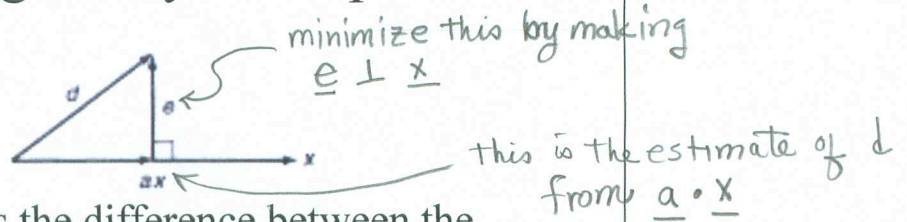 minimize this by making
e ⊥ x
d
e
x
ax
this is the estimate of d
from a • x
the difference between the